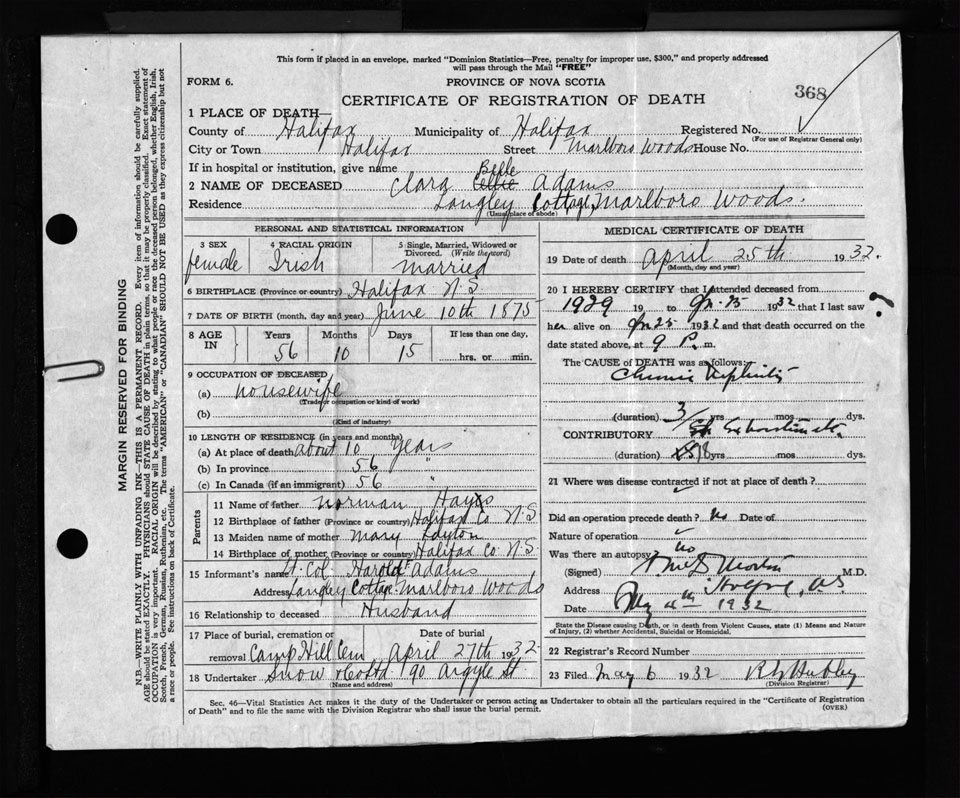 This form if placed in an envelope, marked "Dominion Statistics—Free, penalty for improper use, $300," and properly addressed
will pass through the Mail "FREE"
FORM 6.
PROVINCE OF NOVA SCOTIA
368
CERTIFICATE OF REGISTRATION OF DEATH
1 PLACE OF DEATH—
County of Halifax Municipality of Halifax Registered No.
(For use of Registrar General only)
City or Town Halifax Street Marlboro Woods House No.
If in hospital or institution, give name
Belle
2 NAME OF DECEASED Clara Adams
Residence Langley Cottage, Marlboro Woods.
(Usual place of abode)
PERSONAL AND STATISTICAL INFORMATION
3 SEX 4 RACIAL ORIGIN 5 Single, Married, Widowed or Divorced. (Write the word)
female Irish married
6 BIRTHPLACE (Province or country) Halifax N.S.
7 DATE OF BIRTH (month, day and year) June 10th 1875
8 AGE IN Years Months Days If less than one day,
56 10 15 hrs. or min.
9 OCCUPATION OF DECEASED
(a) housewife
(Trade or occupation or kind of work)
(b)
(Kind of industry)
10 LENGTH OF RESIDENCE (in years and months)
(a) At place of death about 10 years
(b) In province 56 "
(c) In Canada (if an immigrant) 56 "
Parents
11 Name of father Norman Hays
12 Birthplace of father (Province or country) Halifax Co N.S.
13 Maiden name of mother Mary Layton
14 Birthplace of mother (Province or country) Halifax Co N.S.
15 Informant's name Lt. Col. Harold Adams
Address Langley Cottage Marlboro Woods
16 Relationship to deceased Husband
17 Place of burial, cremation or removal Date of burial
Camp Hill Cem April 27th 1932
18 Undertaker Snow & Co Ltd 90 Argyle St
(Name and address)
MEDICAL CERTIFICATE OF DEATH
19 Date of death April 25th 1932.
(Month, day and year)
20 I HEREBY CERTIFY that I attended deceased from
1929 19 to 1932 that I last saw
her alive on 25 1932 and that death occurred on the
date stated above, at 9 P. m.
?
The CAUSE of DEATH was as follows:
Chronic Nephritis
(duration) 3 yrs mos dys.
CONTRIBUTORY
(duration) yrs mos dys.
21 Where was disease contracted if not at place of death?
Did an operation precede death? No Date of
Nature of operation
Was there an autopsy? No
(Signed) M.D.
Address N.S.
Date May 1932
State the Disease causing Death, or in death from Violent Causes, state (1) Means and Nature
of Injury, (2) whether Accidental, Suicidal or Homicidal.
22 Registrar's Record Number
23 Filed May 6 1932
(Division Registrar)
Sec. 46—Vital Statistics Act makes it the duty of the Undertaker or person acting as Undertaker to obtain all the particulars required in the "Certificate of Registration
of Death" and to file the same with the Division Registrar who shall issue the burial permit.
(OVER)
MARGIN RESERVED FOR BINDING
N.B.—WRITE PLAINLY WITH UNFADING INK—THIS IS A PERMANENT RECORD. Every item of information should be carefully supplied.
AGE should be stated EXACTLY. PHYSICIANS should STATE CAUSE OF DEATH in plain terms, so that it may be properly classified. Exact statement of
OCCUPATION is very important. RACIAL ORIGIN will be described by stating to what people or race the deceased person belonged, whether English, Irish,
Scotch, French, German, Russian, Ruthenian, etc. The terms "AMERICAN" or "CANADIAN" SHOULD NOT BE USED as they express citizenship but not
a race or people. See instructions on back of Certificate.